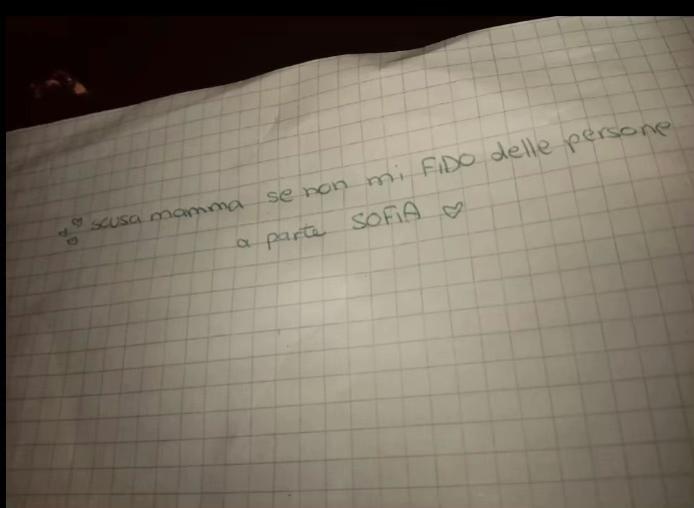 scusa mamma se non mi FiDO delle persone
a parte SOFiA ♡